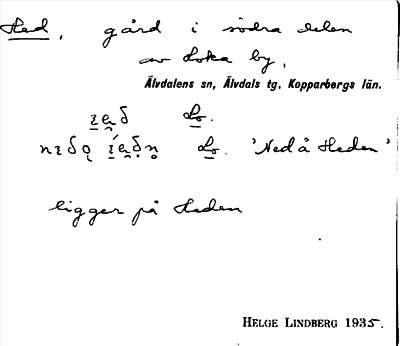 Hed, gård i södra delen
av Loka by.
Älvdalens sn, Älvdals tg. Kopparbergs län.
Lo.
Lo. 'Nedå Heden'
ligger på Heden
HELGE LINDBERG 1935.